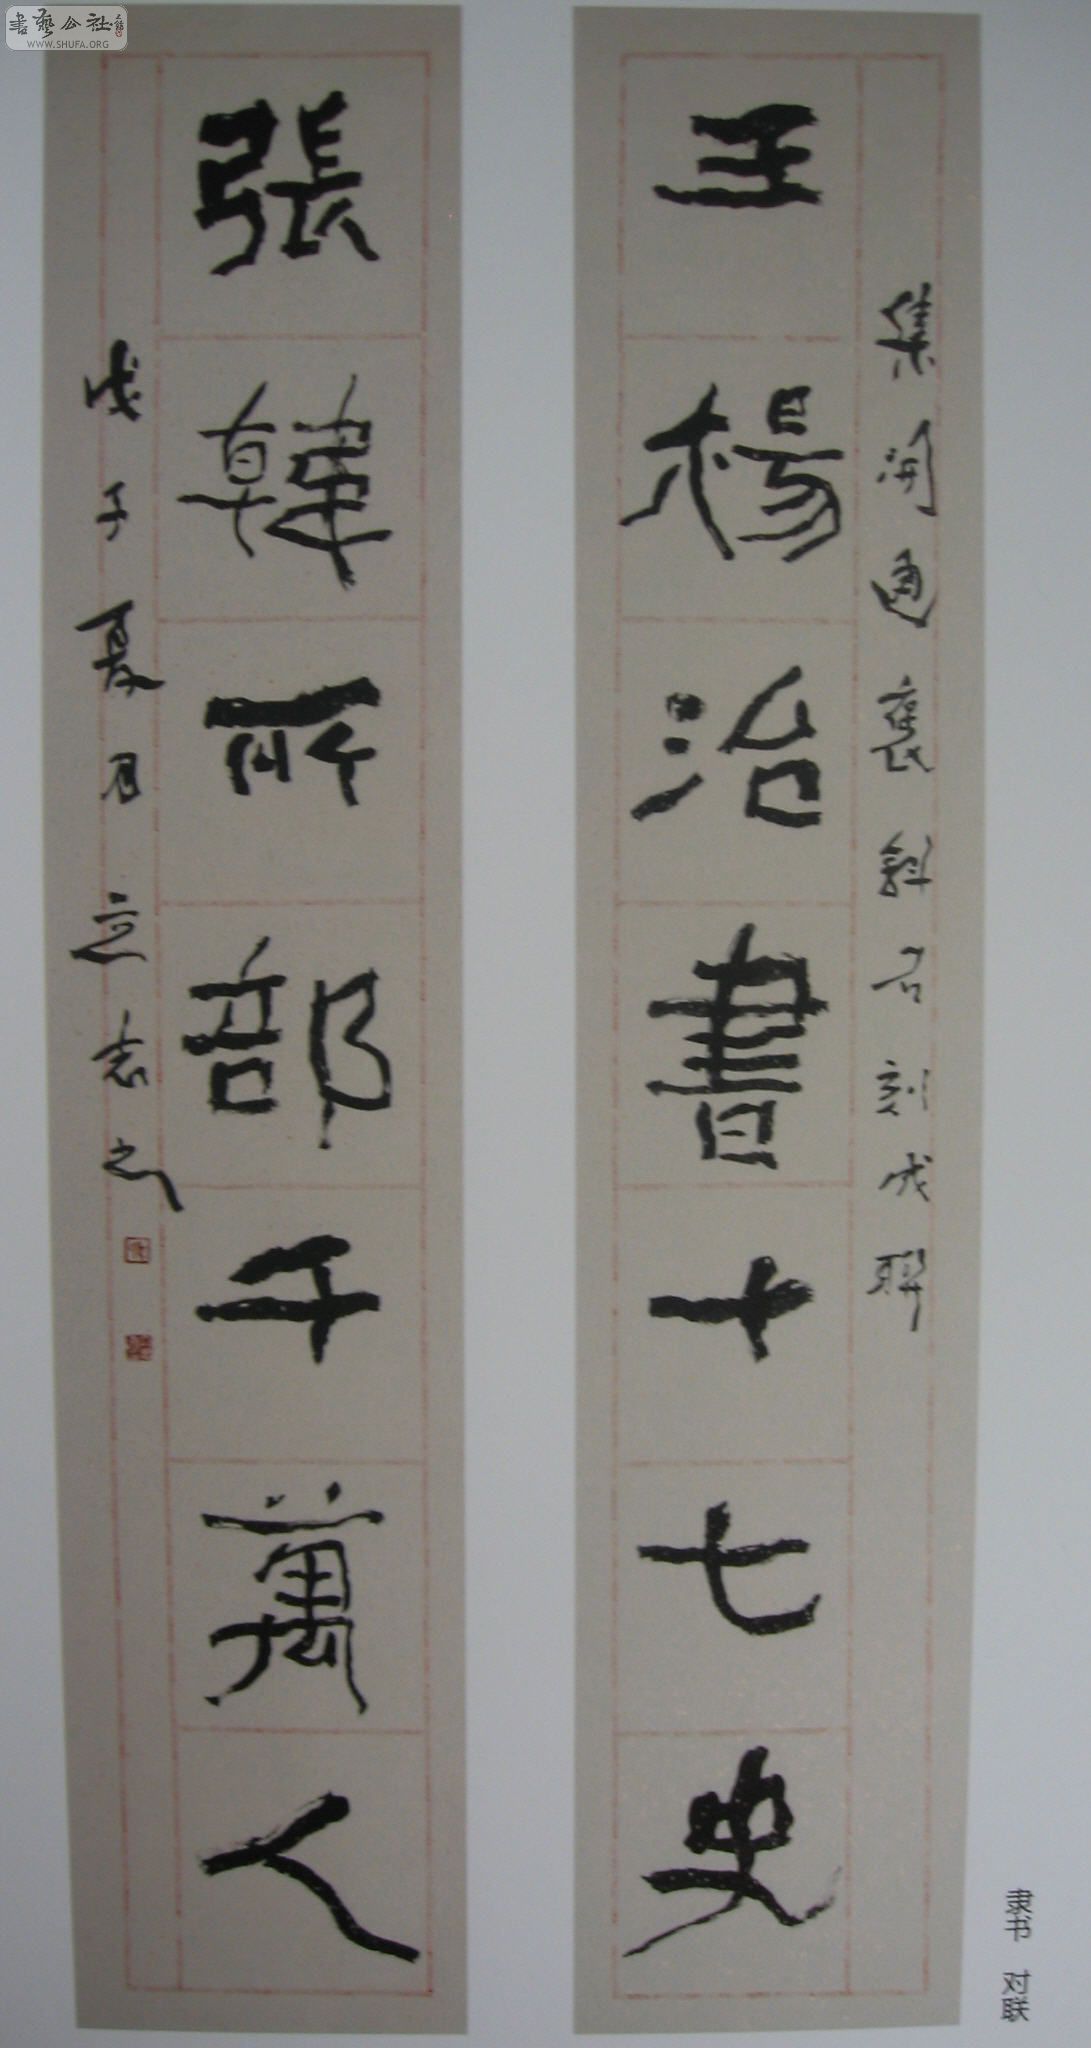 集开通褒斜石刻成联
王楊治書十七史
張韓所部千萬人
戊子夏月
志之
隶书 对联
書藝公社
WWW.SHUFA.ORG